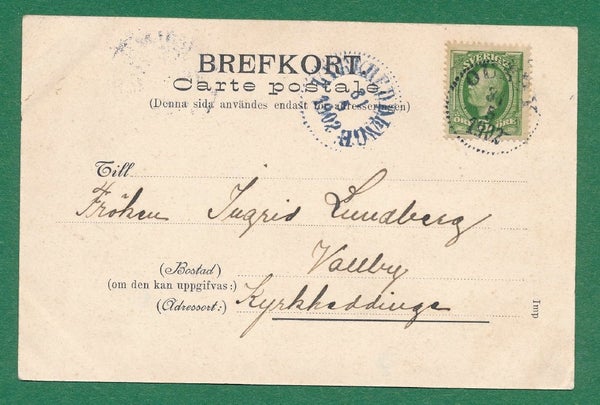 BREFKORT
Carte postale
(Denna sida användes endast för adresseringen)
KYRKHEDDINGE
8
1902
SVERIGE
ÖRE
1902
Till
Fröken Ingrid Lundberg
Vallby
(Bostad)
(om den kan uppgifvas:)
(Adressort:) Kyrkheddinge
Imp